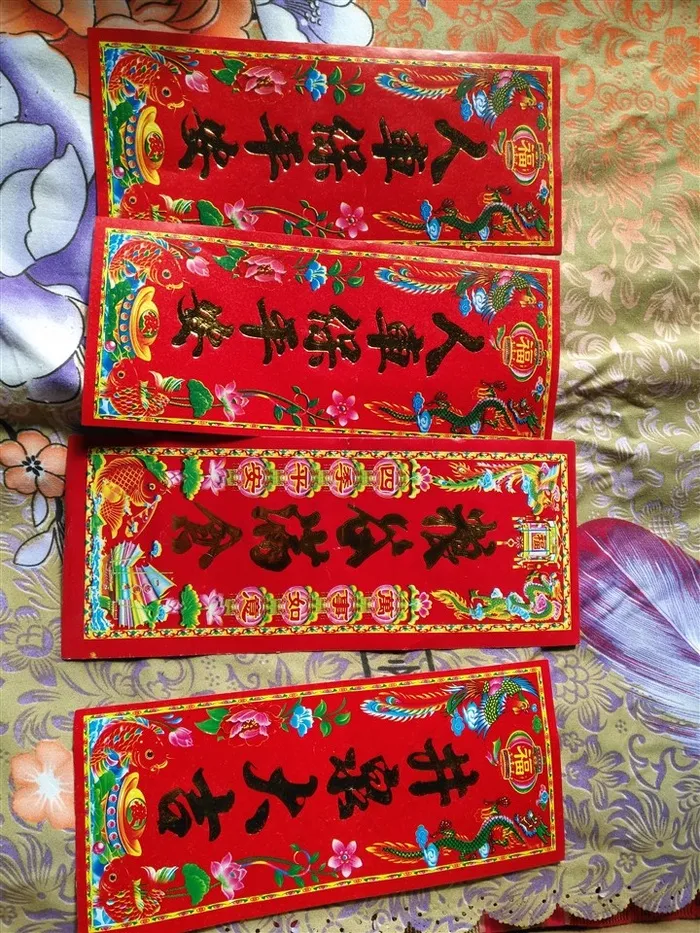 福
人車保平安
福
人車保平安
福
四季平安
粮谷滿倉
萬事如意
福
井泉大吉